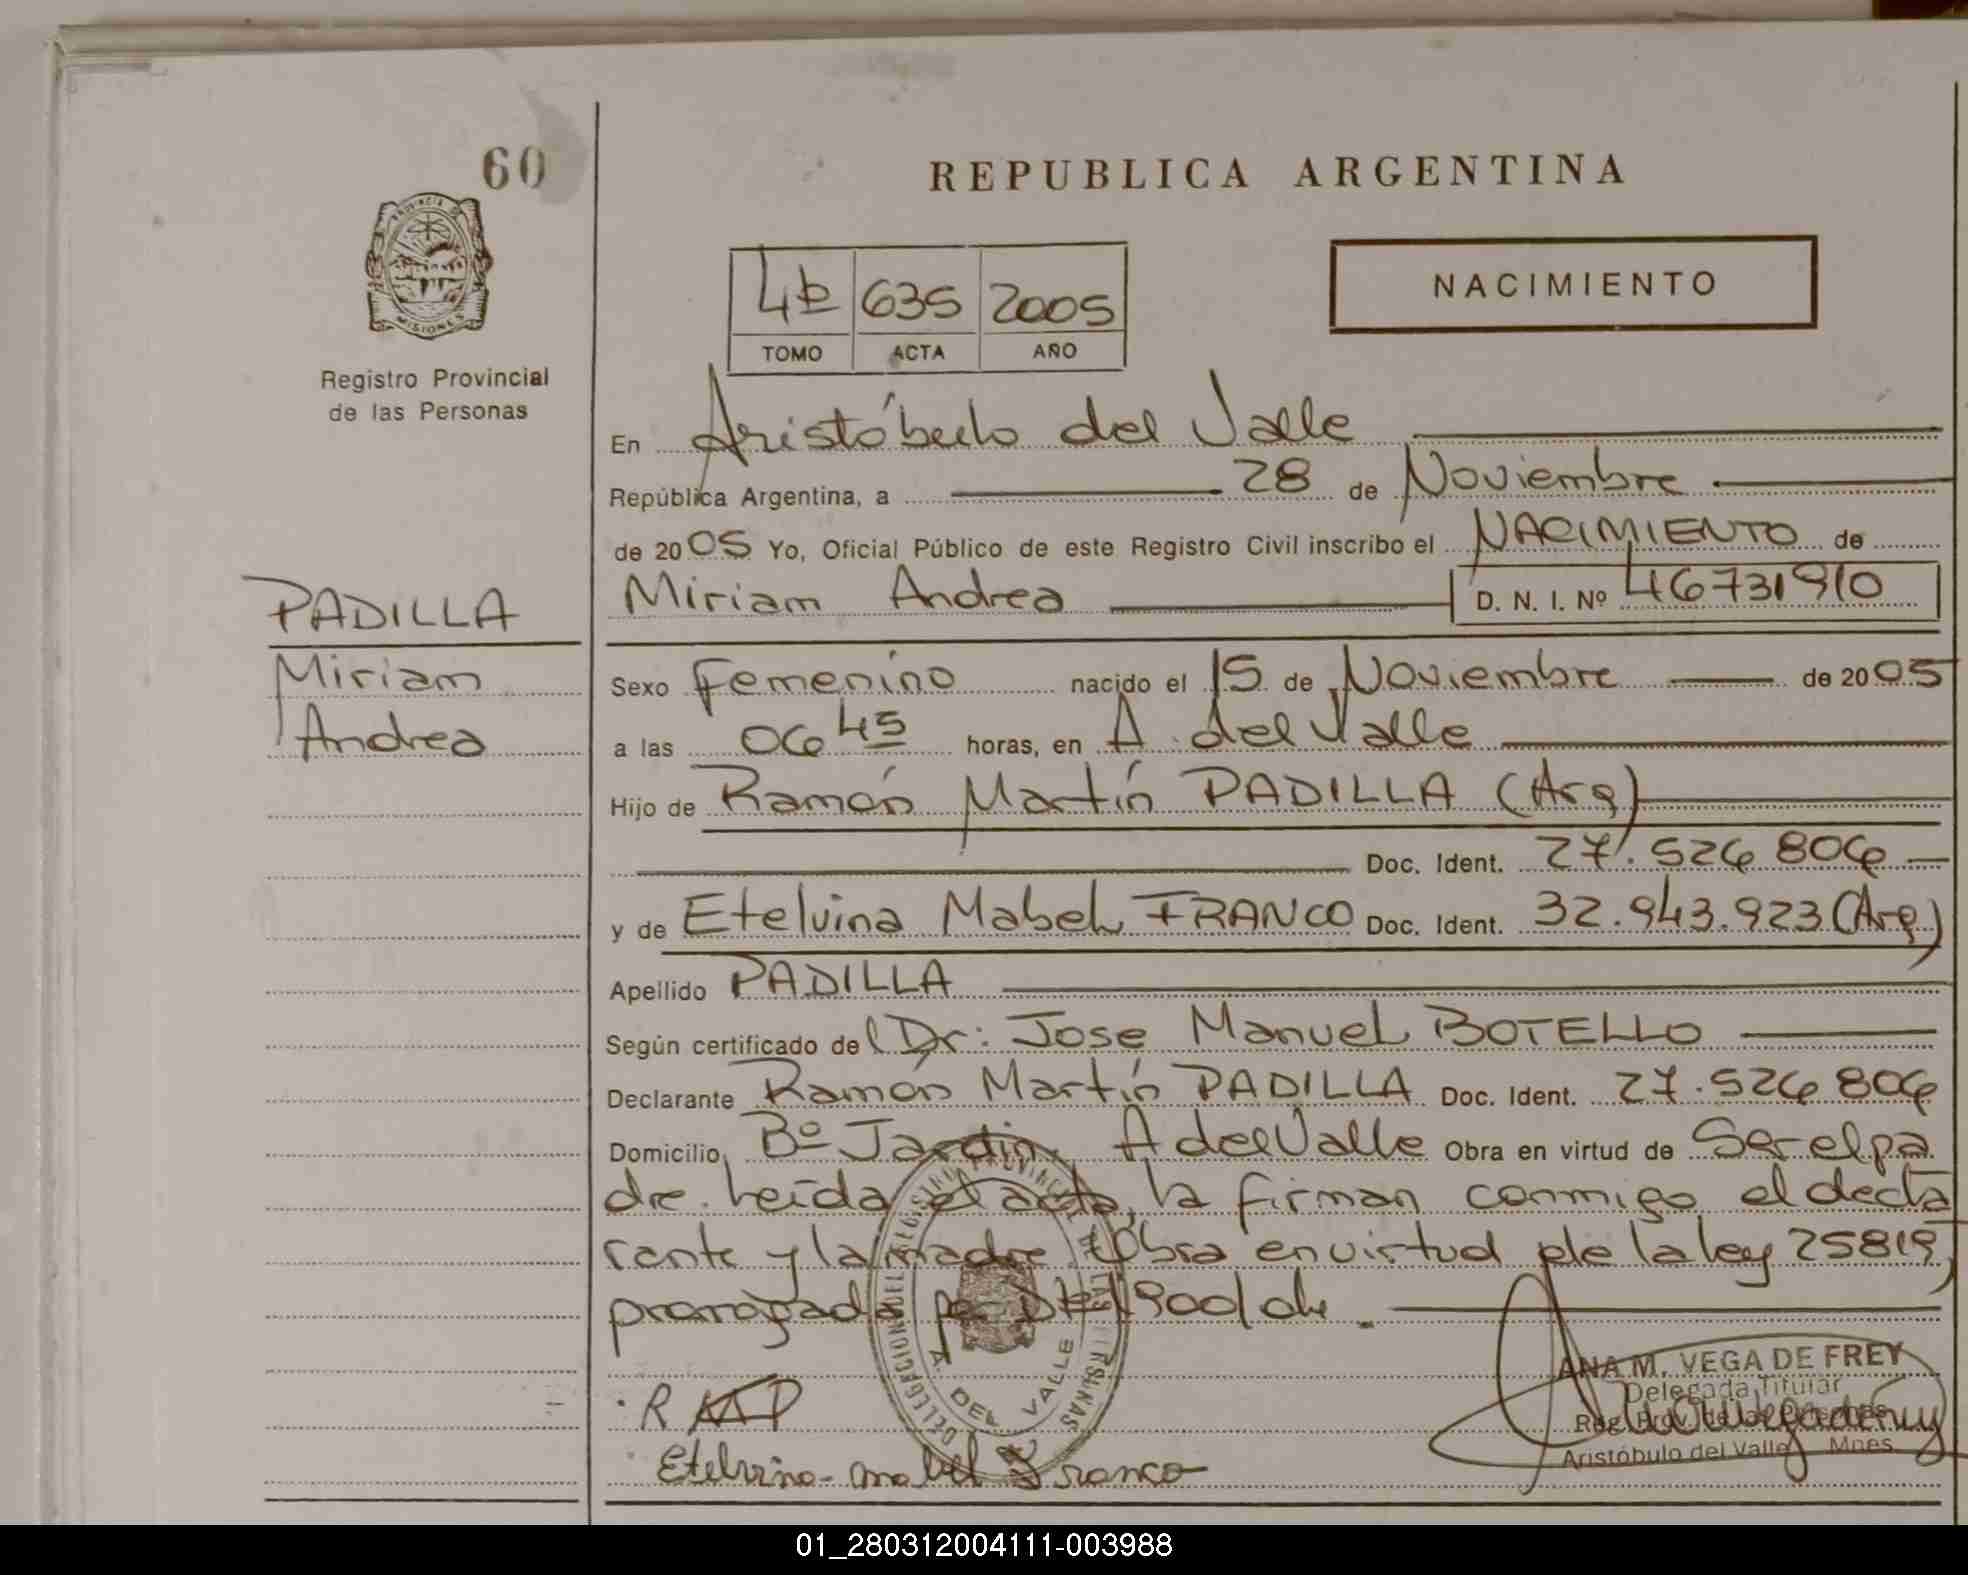 60
REPUBLICA ARGENTINA
PROVINCIA DE
MISIONES
Registro Provincial
de las Personas
4b 635 2005
TOMO ACTA AÑO
NACIMIENTO
En Aristóbulo del Valle
República Argentina, a 28 de Noviembre
de 2005 Yo, Oficial Público de este Registro Civil inscribo el NACIMIENTO de
Miriam Andrea D. N. I. Nº 46731910
PADILLA
Miriam
Andrea
Sexo Femenino nacido el 15 de Noviembre de 2005
a las 06 45 horas, en A. del Valle
Hijo de Ramón Martín PADILLA (Arg)
Doc. Ident. 27.526 806
y de Etelvina Mabel FRANCO Doc. Ident. 32.943.923 (Arg)
Apellido PADILLA
Según certificado del Dr: Jose Manuel BOTELLO
Declarante Ramón Martín PADILLA Doc. Ident. 27.526 806
Domicilio Bº Jardin A del Valle Obra en virtud de Ser el pa
dre. Leída el acta, la firman conmigo el decla
rante y la madre. Obra en virtud de la ley 25819,
prorrogada
REGISTRO PROVINCIAL DE LAS PERSONAS
DELEGACION DEL
A. DEL VALLE
ANA M. VEGA DE FREY
Delegada Titular
Reg. Prov. de las Personas
Aristóbulo del Valle Mnes
R
Etelvina mabel Franco
01_280312004111-003988